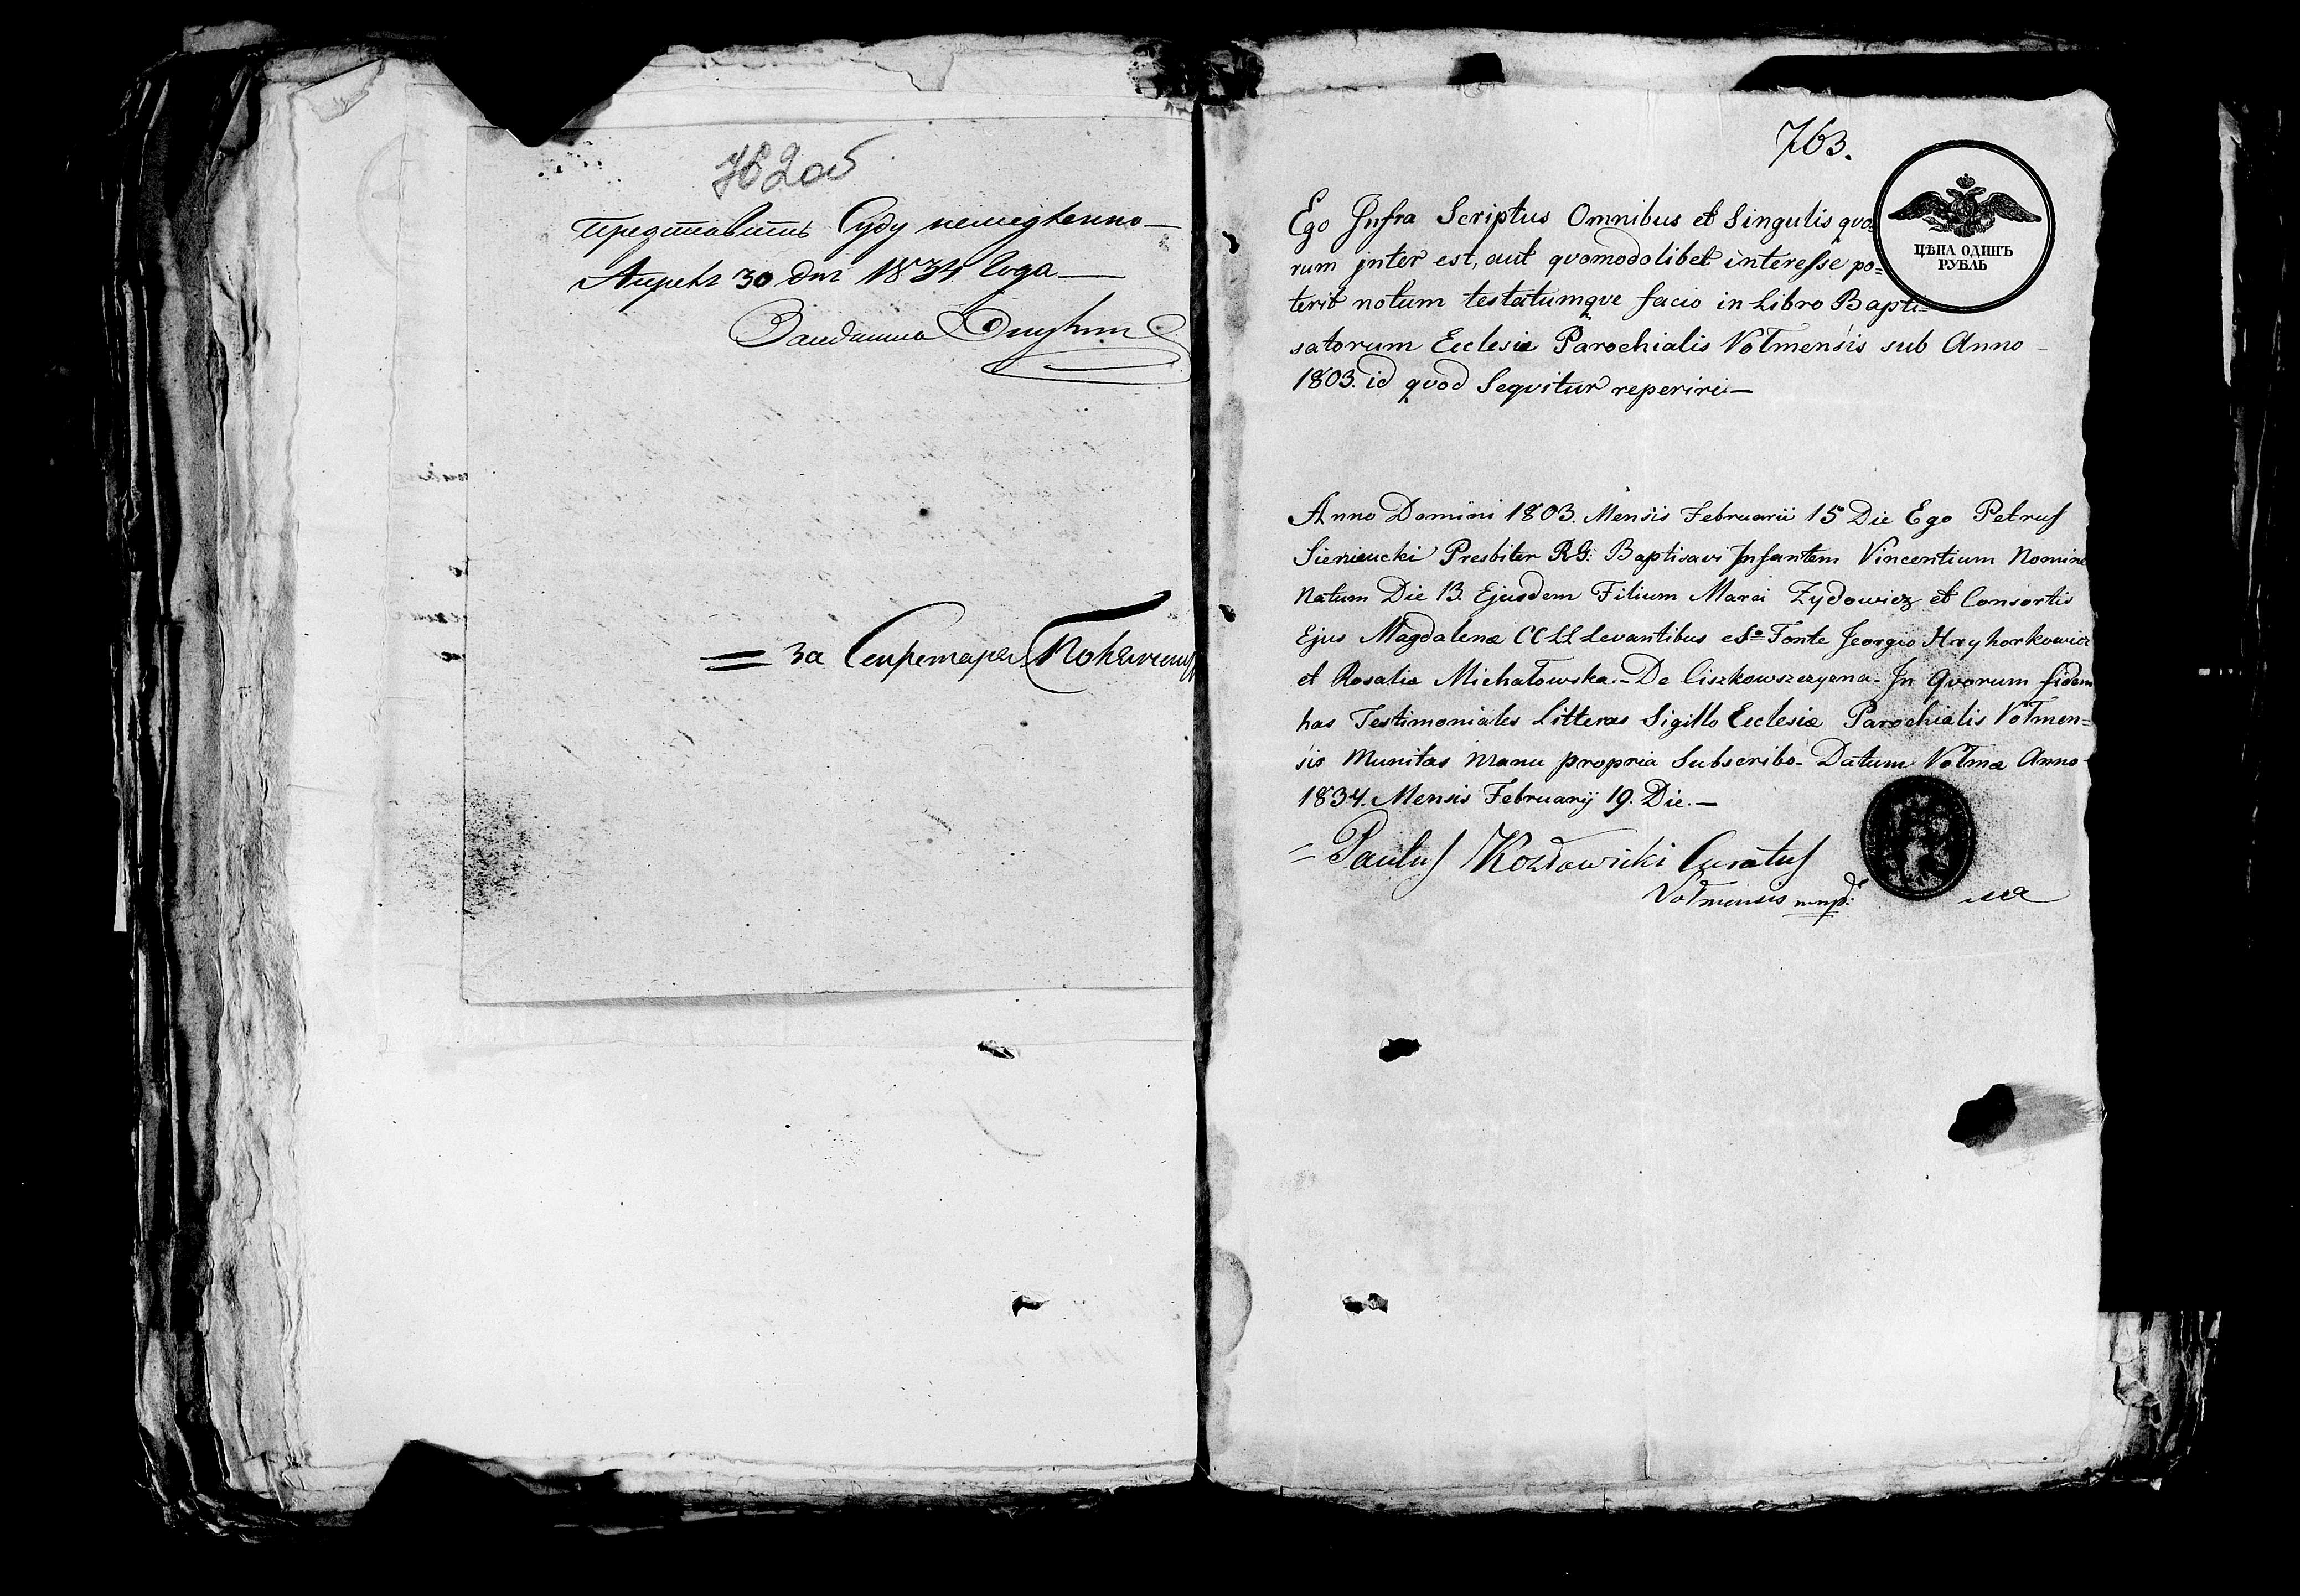 762об
представить Суду немедленно —
Апреля 30 дня 1834 года —
Заседатель
= За Секретаря
763.
ЦѢНА ОДИНЪ
РУБЛЬ
Ego Jnfra Scriptus Omnibus et Singulis qvo=
rum jnter est, aut qvomodolibet interesse po=
terit notum testatumqve facio in Libro Bapti=
satorum Ecclesiæ Parochialis Vołmensis sub Anno –
1803. id qvod Seqvitur reperiri —
Anno Domini 1803. Mensis Februarii 15 Die Ego Petrus
Presbiter RG: Baptisavi Jnfantem Vincentium Nomine
Natum Die 13. Ejusdem Filium Marci Zydowicz et Consortis
Ejus Magdalenæ CCLL Levantibus e So Fonte Jeorgio Hryhorkowicz
et Rosalia Michałowska.– De Ciszkowszczyzna – Jn Qvorum fidem
has Testimoniales Litteras Sigillo Ecclesiæ Parochialis Vołmen=
sis Munitas Manu propria Subscribo – Datum Vołmæ Anno –
1834. Mensis Februarij 19. Die. —
= Paulus Kozłowicki Curatus
Vołmensis mnp: